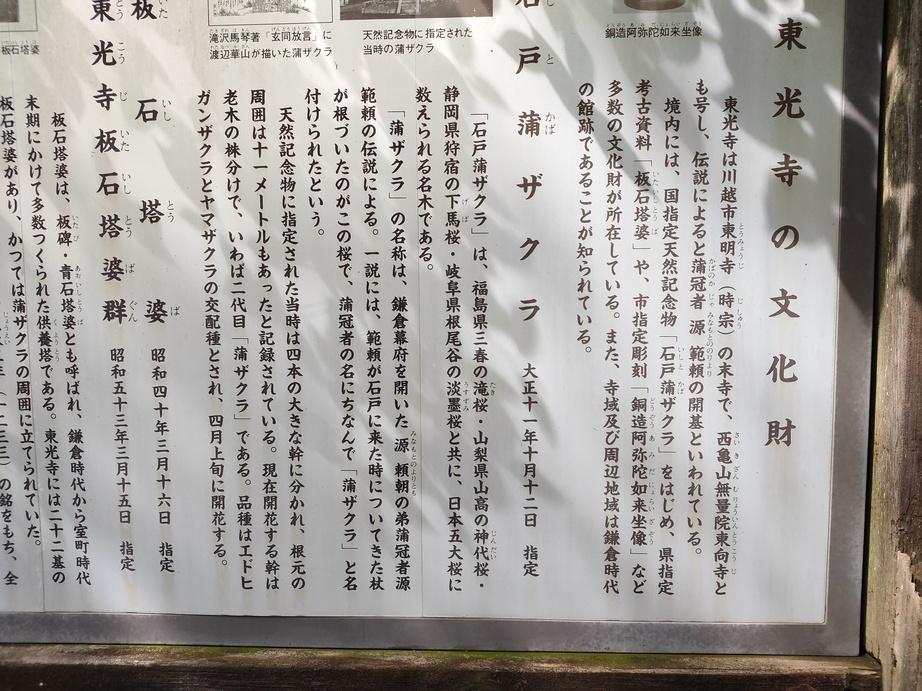 東光寺の文化財
東光寺は川越市東明寺（時宗）の末寺で、西亀山無量院東向寺と
も号し、伝説によると蒲冠者源範頼の開基といわれている。
境内には、国指定天然記念物「石戸蒲ザクラ」をはじめ、県指定
考古資料「板石塔婆」や、市指定彫刻「銅造阿弥陀如来坐像」など
多数の文化財が所在している。また、寺域及び周辺地域は鎌倉時代
の館跡であることが知られている。
銅造阿弥陀如来坐像
石戸蒲ザクラ 大正十一年十月十二日 指定
「石戸蒲ザクラ」は、福島県三春の滝桜・山梨県山高の神代桜・
静岡県狩宿の下馬桜・岐阜県根尾谷の淡墨桜と共に、日本五大桜に
数えられる名木である。
「蒲ザクラ」の名称は、鎌倉幕府を開いた源頼朝の弟蒲冠者源
範頼の伝説による。一説には、範頼が石戸に来た時についてきた杖
が根づいたのがこの桜で、蒲冠者の名にちなんで「蒲ザクラ」と名
付けられたという。
天然記念物に指定された当時は四本の大きな幹に分かれ、根元の
周囲は十一メートルもあったと記録されている。現在開花する幹は
老木の株分けで、いわば二代目「蒲ザクラ」である。品種はエドヒ
ガンザクラとヤマザクラの交配種とされ、四月上旬に開花する。
天然記念物に指定された
当時の蒲ザクラ
滝沢馬琴著「玄同放言」に
渡辺崋山が描いた蒲ザクラ
板石塔婆 昭和四十年三月十六日 指定
東光寺板石塔婆群 昭和五十三年三月十五日 指定
板石塔婆は、板碑・青石塔婆とも呼ばれ、鎌倉時代から室町時代
末期にかけて多数つくられた供養塔である。東光寺には二十二基の
板石塔婆があり、かつては蒲ザクラの周囲に立てられていた。
（一二三三）の銘をもち、全
板石塔婆